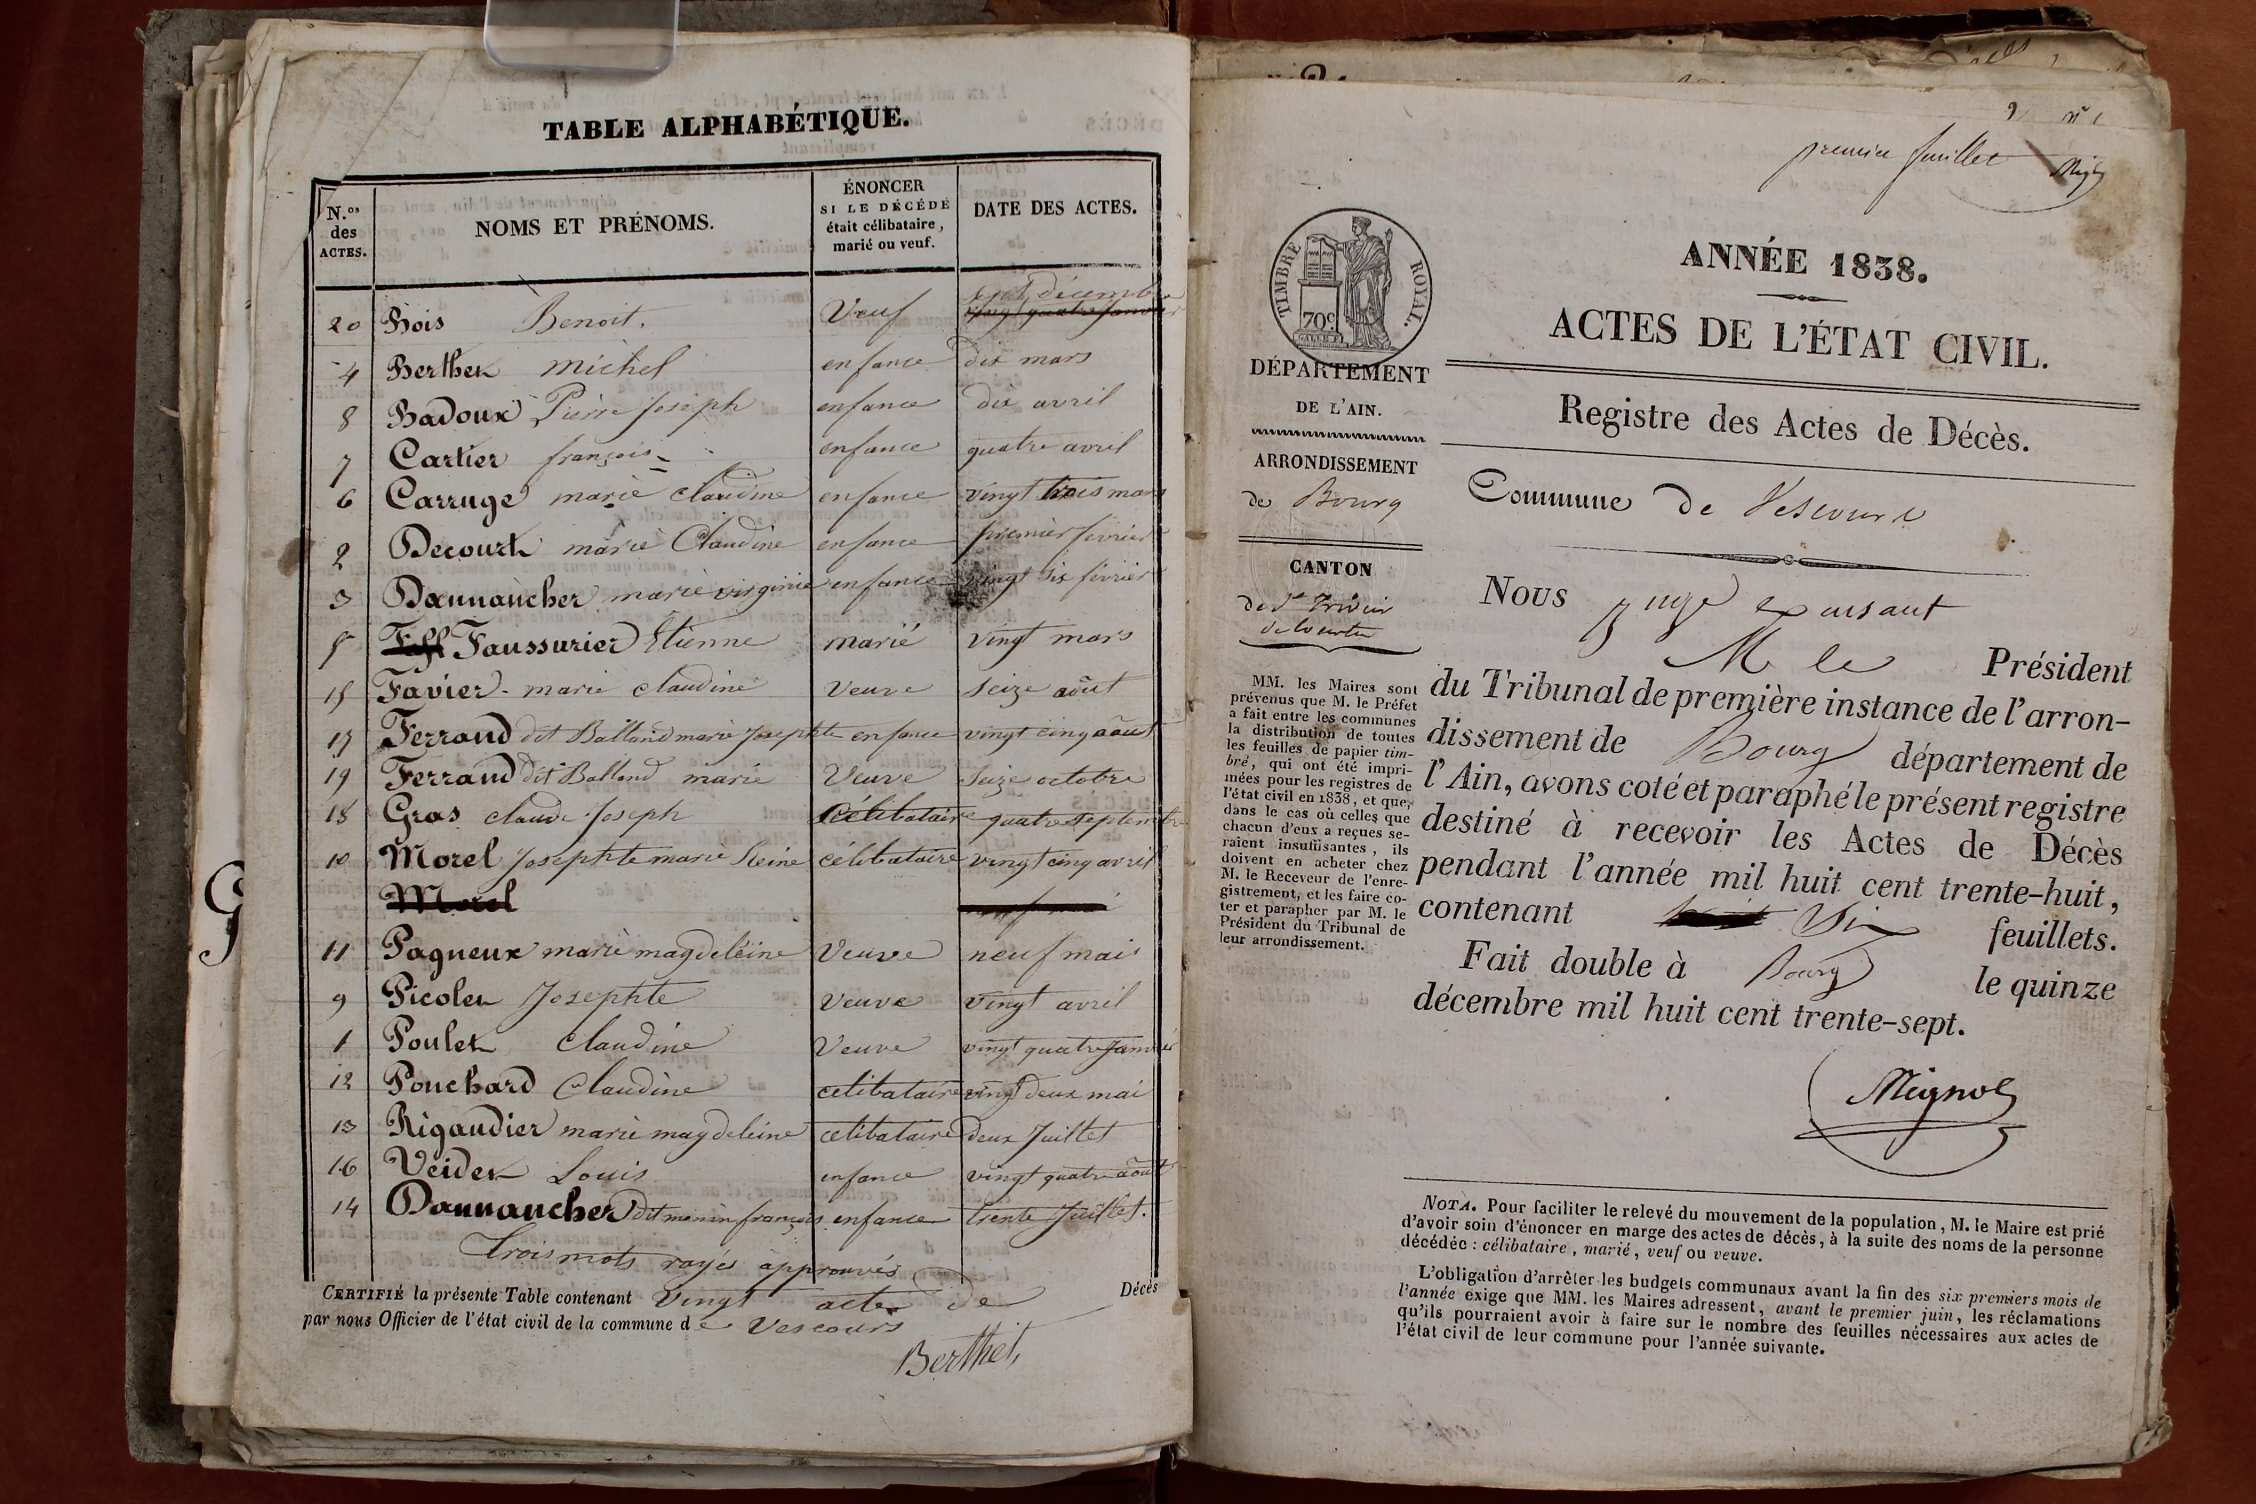 TABLE ALPHABÉTIQUE.
N.os des ACTES.
NOMS ET PRÉNOMS.
ÉNONCER SI LE DÉCÉDÉ était célibataire, marié ou veuf.
DATE DES ACTES.
20 Bois Benoit. Veuf sept décembre
4 Berthet michel enfance dix mars
8 Badoux Pierre Joseph enfance dix avril
7 Cartier françois enfance quatre avril
6 Carruge marie claudine enfance vingt trois mars
2 Decourt marie Claudine enfance premier février
3 Dannancher marie virginie enfance vingt six février
5 Faussurier Etienne marié vingt mars
15 Favier marie claudine Veuve seize août
17 Ferrand dit Balland marie Josephte enfance vingt cinq août
19 Ferrand dit Balland marie Veuve seize octobre
18 Gras claude Joseph célibataire quatre septembre
10 Morel Josephte marie Reine célibataire vingt cinq avril
Morel
11 Pagneux marie magdeleine Veuve neuf mai
9 Picolet Josephte veuve vingt avril
1 Poulet Claudine Veuve vingt quatre Janvier
12 Pouchard Claudine celibataire vingt deux mai
13 Rigaudier marie magdeleine celibataire deux Juillet
16 Veidet Louis enfance vingt quatre août
14 Dannancher dit menin françois enfance trente Juillet.
trois mots rayés approuvés
CERTIFIÉ la présente Table contenant vingt actes de Décès
par nous Officier de l'état civil de la commune de Vescours
Berthet
premier feuillet
TIMBRE ROYAL.
70c
ANNÉE 1838.
ACTES DE L'ÉTAT CIVIL.
Registre des Actes de Décès.
DÉPARTEMENT
DE L'AIN.
ARRONDISSEMENT
de Bourg
CANTON
de St Trivier
de Courtes
MM. les Maires sont
prévenus que M. le Préfet
a fait entre les communes
la distribution de toutes
les feuilles de papier tim-
bré, qui ont été impri-
mées pour les registres de
l'état civil en 1838, et que,
dans le cas où celles que
chacun d'eux a reçues se-
raient insuffisantes, ils
doivent en acheter chez
M. le Receveur de l'enre-
gistrement, et les faire co-
ter et parapher par M. le
Président du Tribunal de
leur arrondissement.
Commune de Vescours
NOUS juge exerçant
M le Président
du Tribunal de première instance de l'arron-
dissement de Bourg département de
l'Ain, avons coté et paraphé le présent registre
destiné à recevoir les Actes de Décès
pendant l'année mil huit cent trente-huit,
contenant Six feuillets.
Fait double à Bourg le quinze
décembre mil huit cent trente-sept.
NOTA. Pour faciliter le relevé du mouvement de la population, M. le Maire est prié
d'avoir soin d'énoncer en marge des actes de décès, à la suite des noms de la personne
décédée : célibataire, marié, veuf ou veuve.
L'obligation d'arrêter les budgets communaux avant la fin des six premiers mois de
l'année exige que MM. les Maires adressent, avant le premier juin, les réclamations
qu'ils pourraient avoir à faire sur le nombre des feuilles nécessaires aux actes de
l'état civil de leur commune pour l'année suivante.